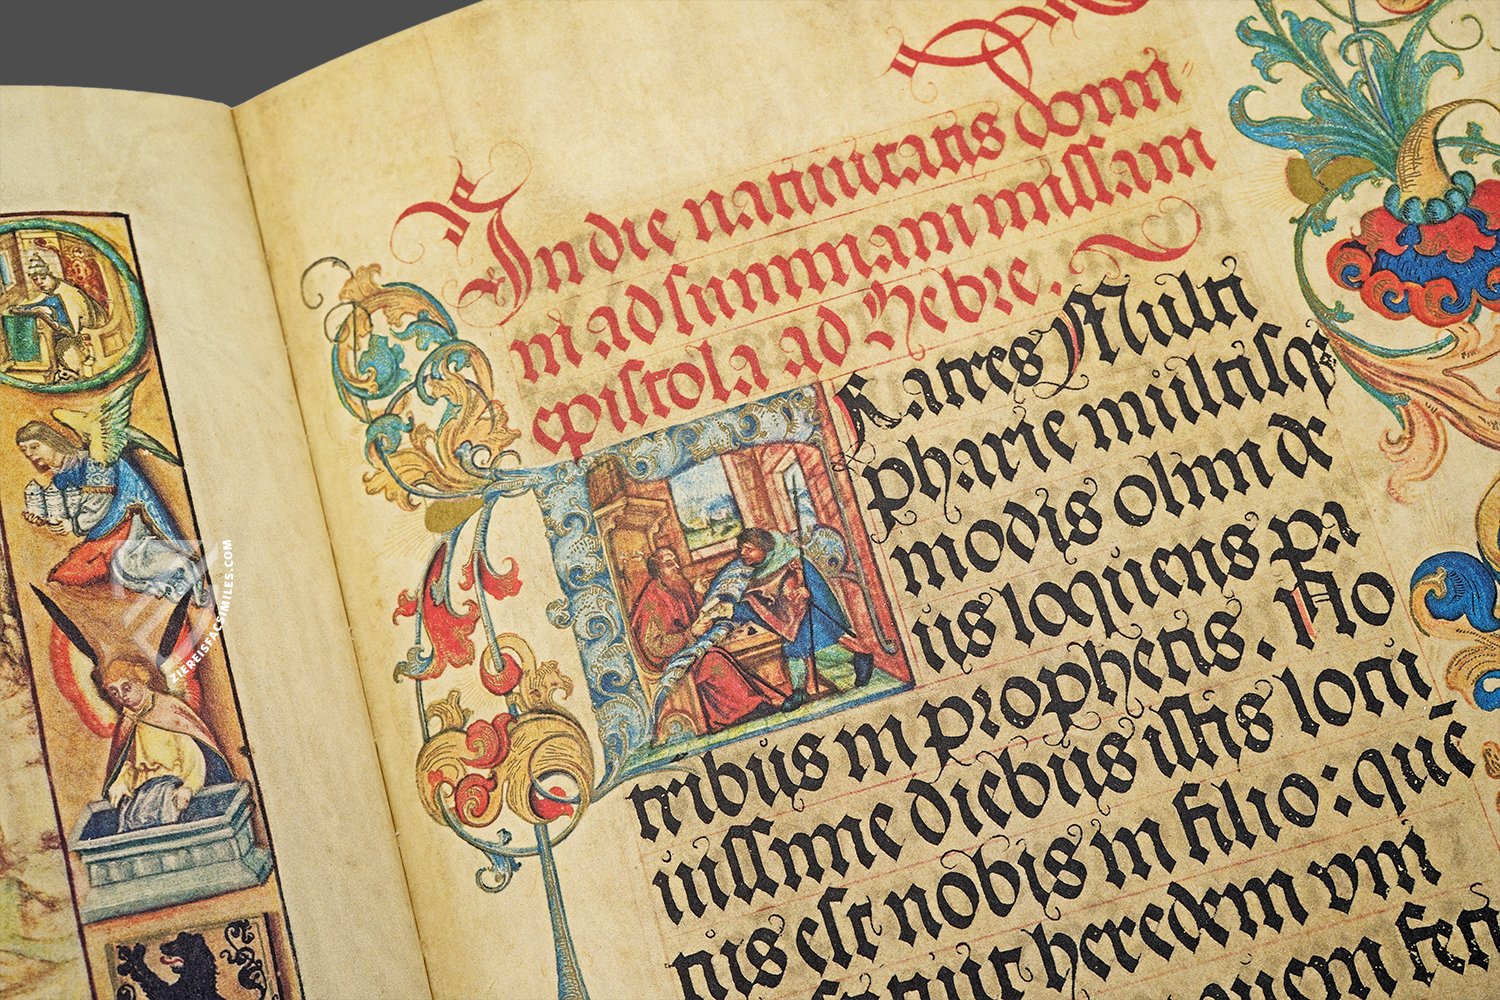 In die natiuitatis domi=
ni ad summam missam
epistola ad Hebre.
FRatres Multi
pharie multisqꝫ
modis olim de
us loquens pa
tribus in prophetis. No
uissime diebus istis locu
tus est nobis in filio: quē
heredem vni
quem
ZIEREISFACSIMILES.COM